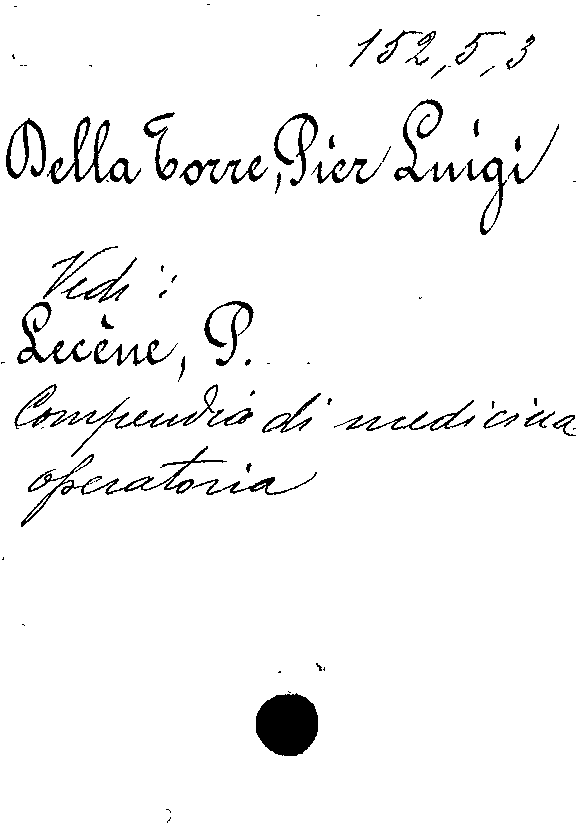 152,5,3
Della Torre, Pier Luigi
Vedi:
Lecène, P.
Compendio di medicina
operatoria